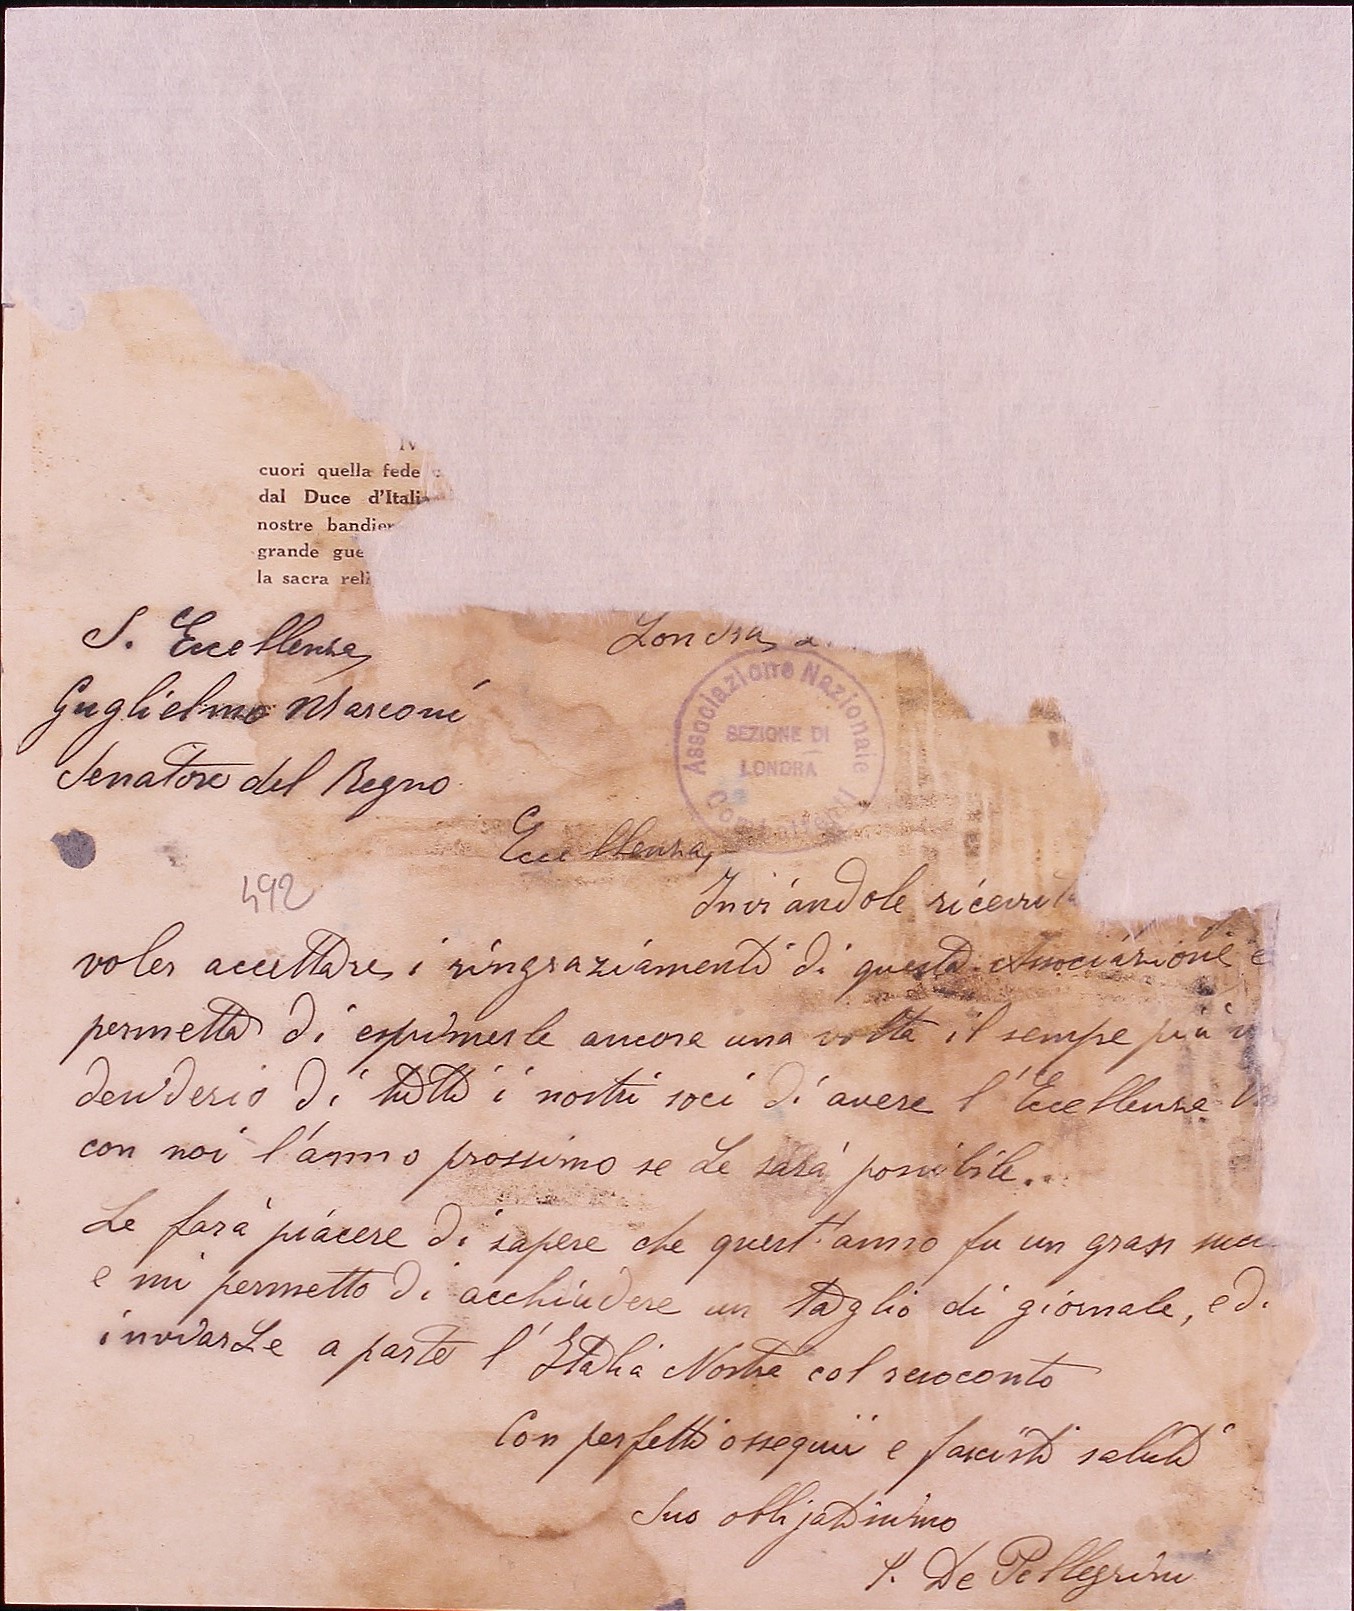 cuori quella fede
dal Duce d'Italia
nostre bandier
grande gue
la sacra reli
S. Eccellenza,
Londra,
Guglielmo Marconi
Senatore del Regno
Associazione Nazionale
SEZIONE DI
LONDRA
Eccellenza,
492
Inviandole ricevuta
voler accettare i ringraziamenti di questa Associazione e
permetta di esprimerle ancora una volta il sempre più
desiderio di tutti i nostri soci di avere l'Eccellenza
con noi l'anno prossimo se Le sarà possibile.
Le farà piacere di sapere che quest'anno fu un gran
e mi permetto di acchiudere un taglio di giornale, e di
inviarLe a parte l'Italia Nostra col resoconto
Con perfetti ossequii e fascisti saluti
Suo obbligatissimo
De Pellegrini